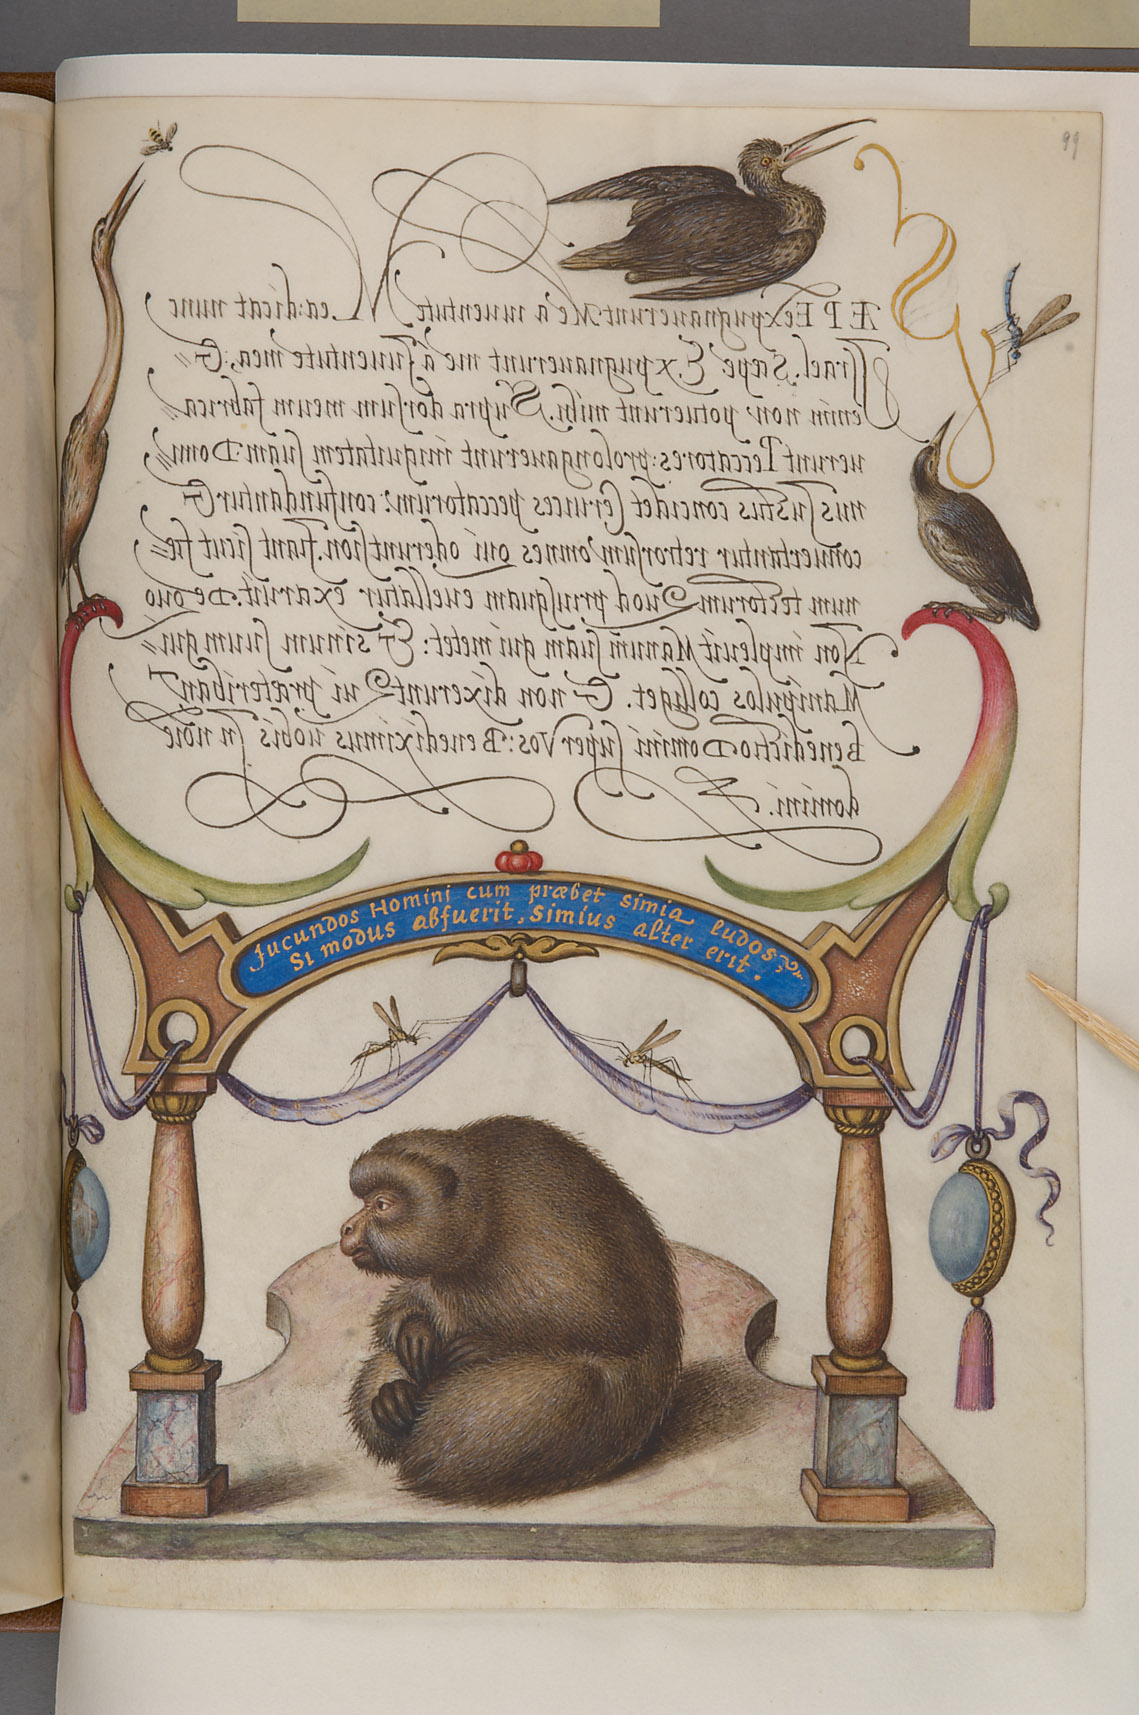 99
SÆPE Expugnauerunt Me a iuuentute Mea: dicat nunc
Israel. Sæpe Expugnauerunt me a Iuuentute mea, &
enim non potuerunt mihi. Supra dorsum meum fabrica
uerunt Peccatores: prolongauerunt iniquitatem suam Domi
nus Iustus concidet Ceruices peccatorum: confundantur &
conuertantur retrorsum omnes qui oderunt sion. fiant sicut fœ
num tectorum Quod priusquam euellatur exaruit. De quo
Non impleuit Manum suam qui metet: & sinum suum qui
Manipulos colliget. & non dixerunt Qui præteribant
Benedictio Domini super Vos: Benediximus uobis In noie
domini.
Jucundos Homini cum præbet simia ludos
Si modus abfuerit, Simius alter erit.